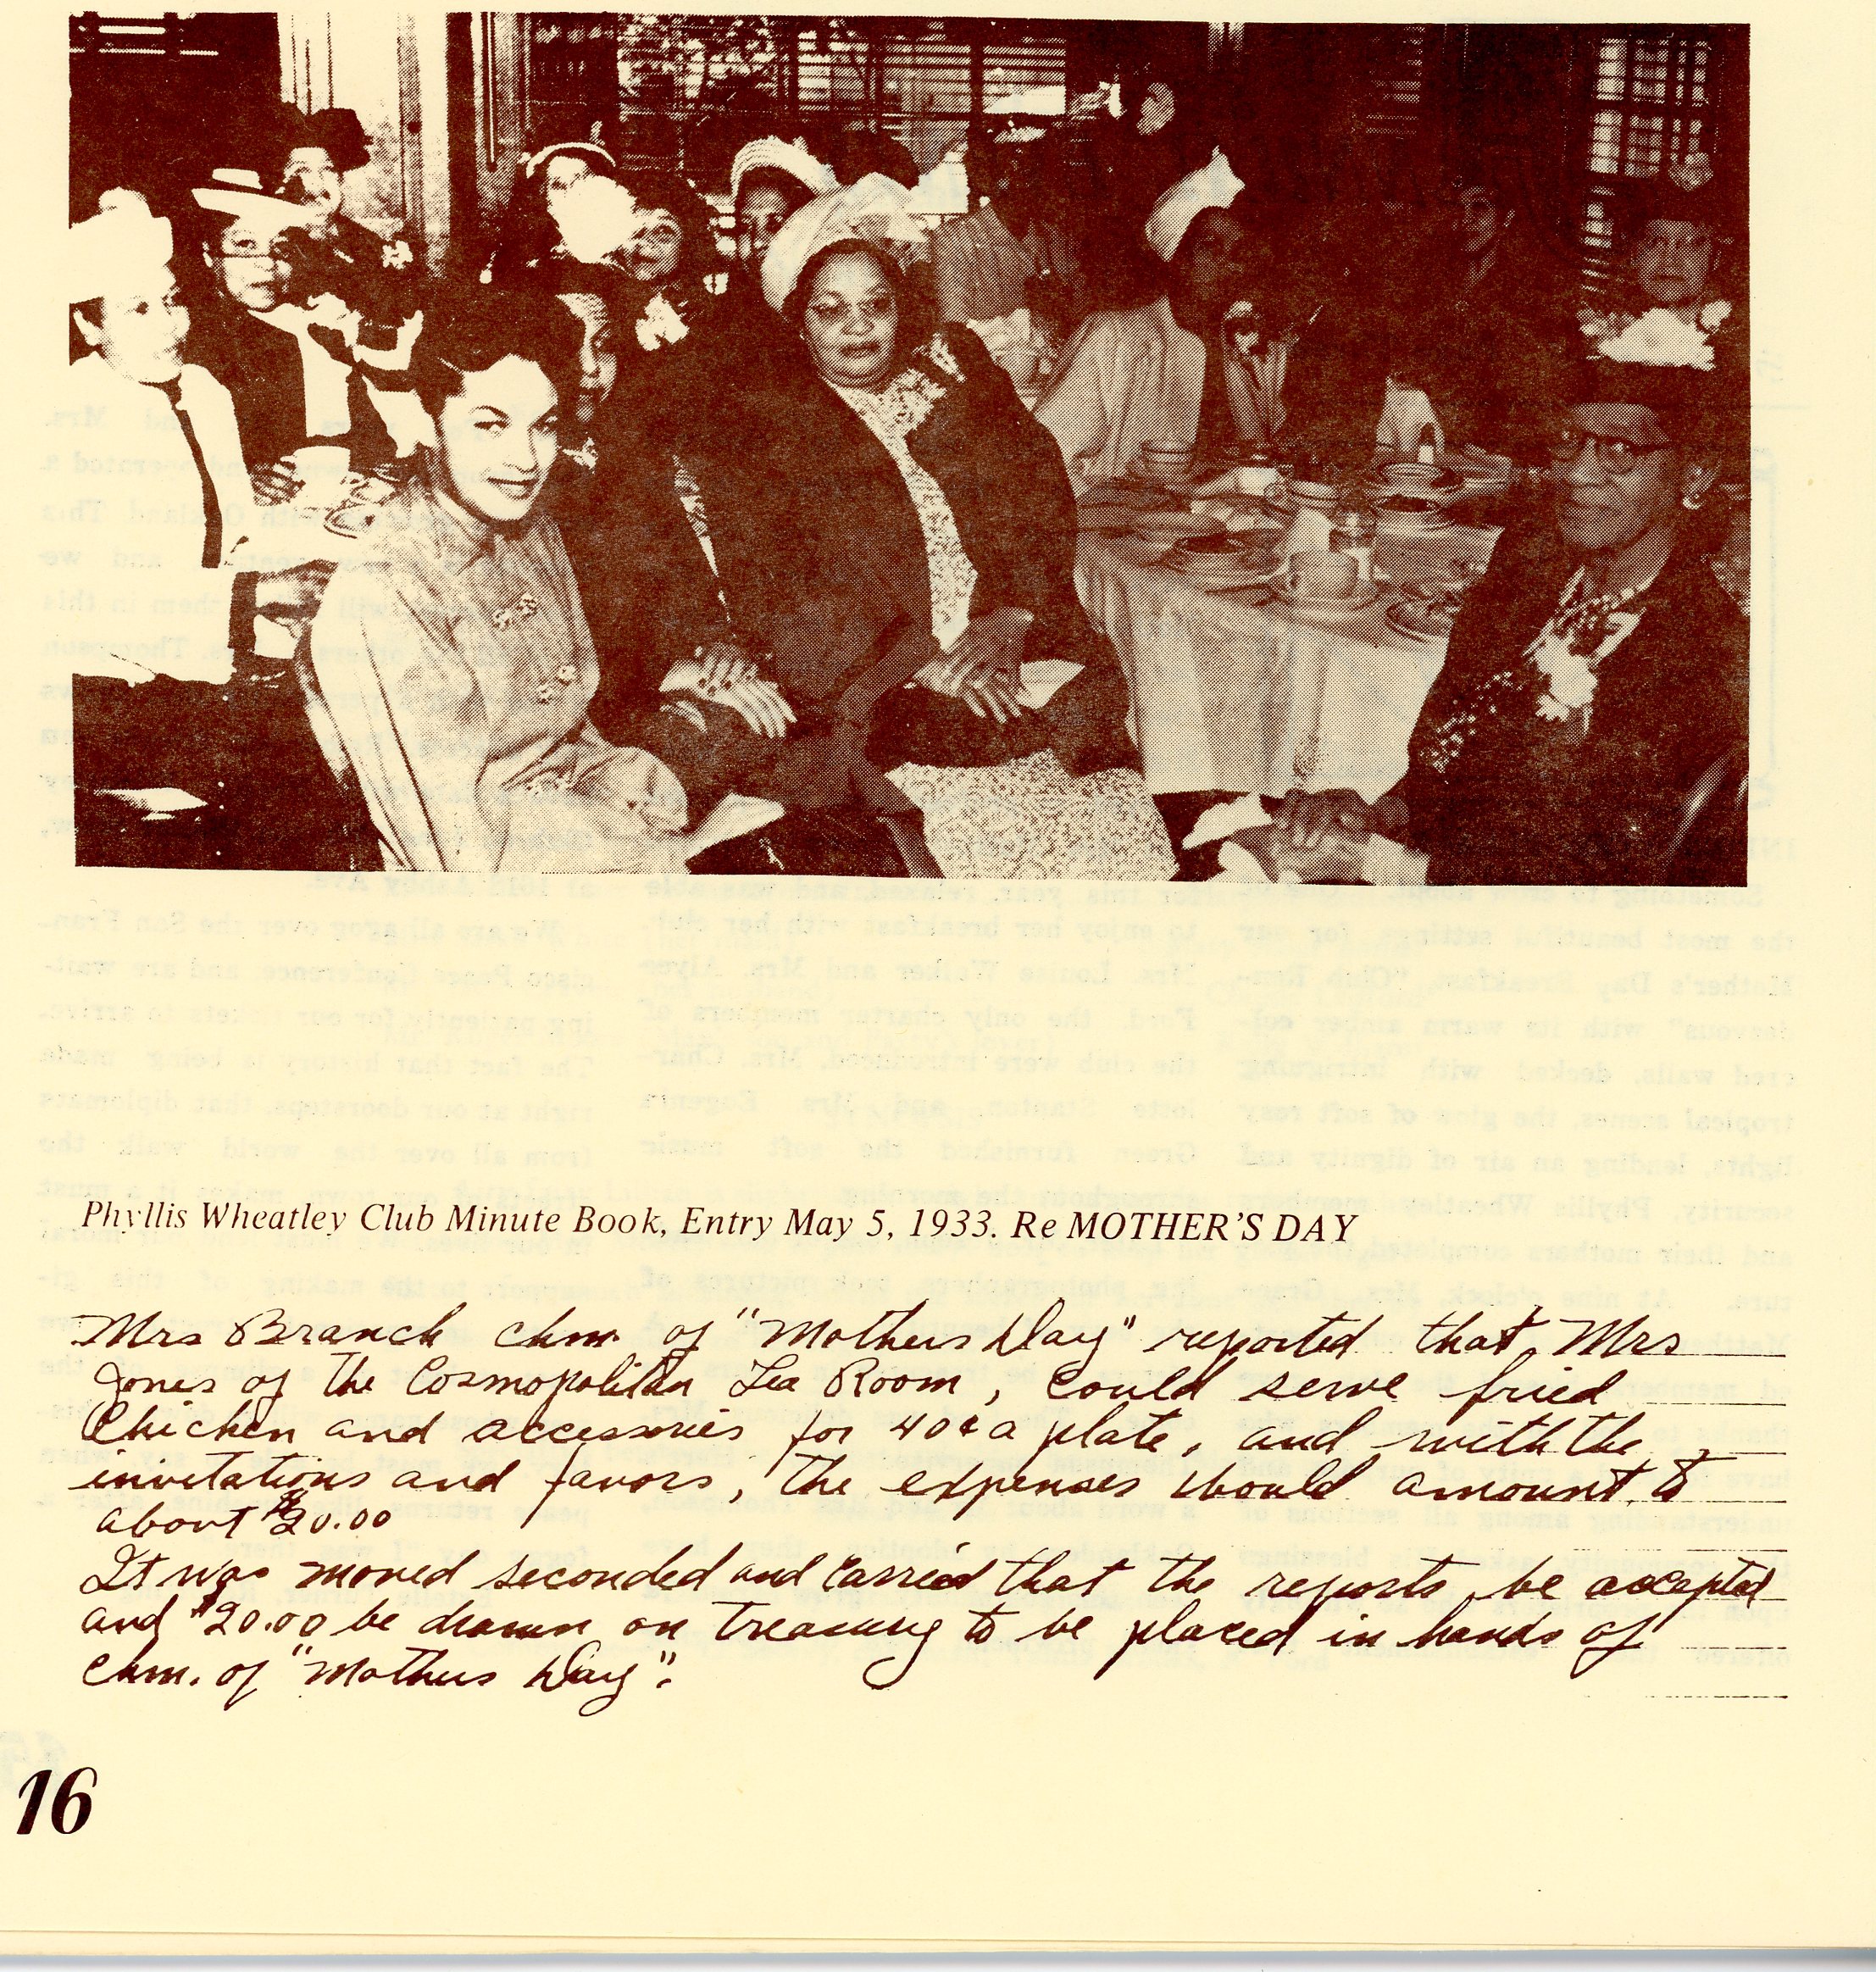 Phyllis Wheatley Club Minute Book, Entry May 5, 1933. Re MOTHER'S DAY
Mrs Branch chm. of "Mothers Day" reported that Mrs
Jones of the Cosmopolitan Tea Room, could serve fried
Chicken and accessories for 40¢ a plate, and with the
invitations and favors, the expenses would amount to
about $20.00
It was moved seconded and carried that the reports be accepted
and $20.00 be drawn on treasury to be placed in hands of
chm. of "Mothers Day".
16